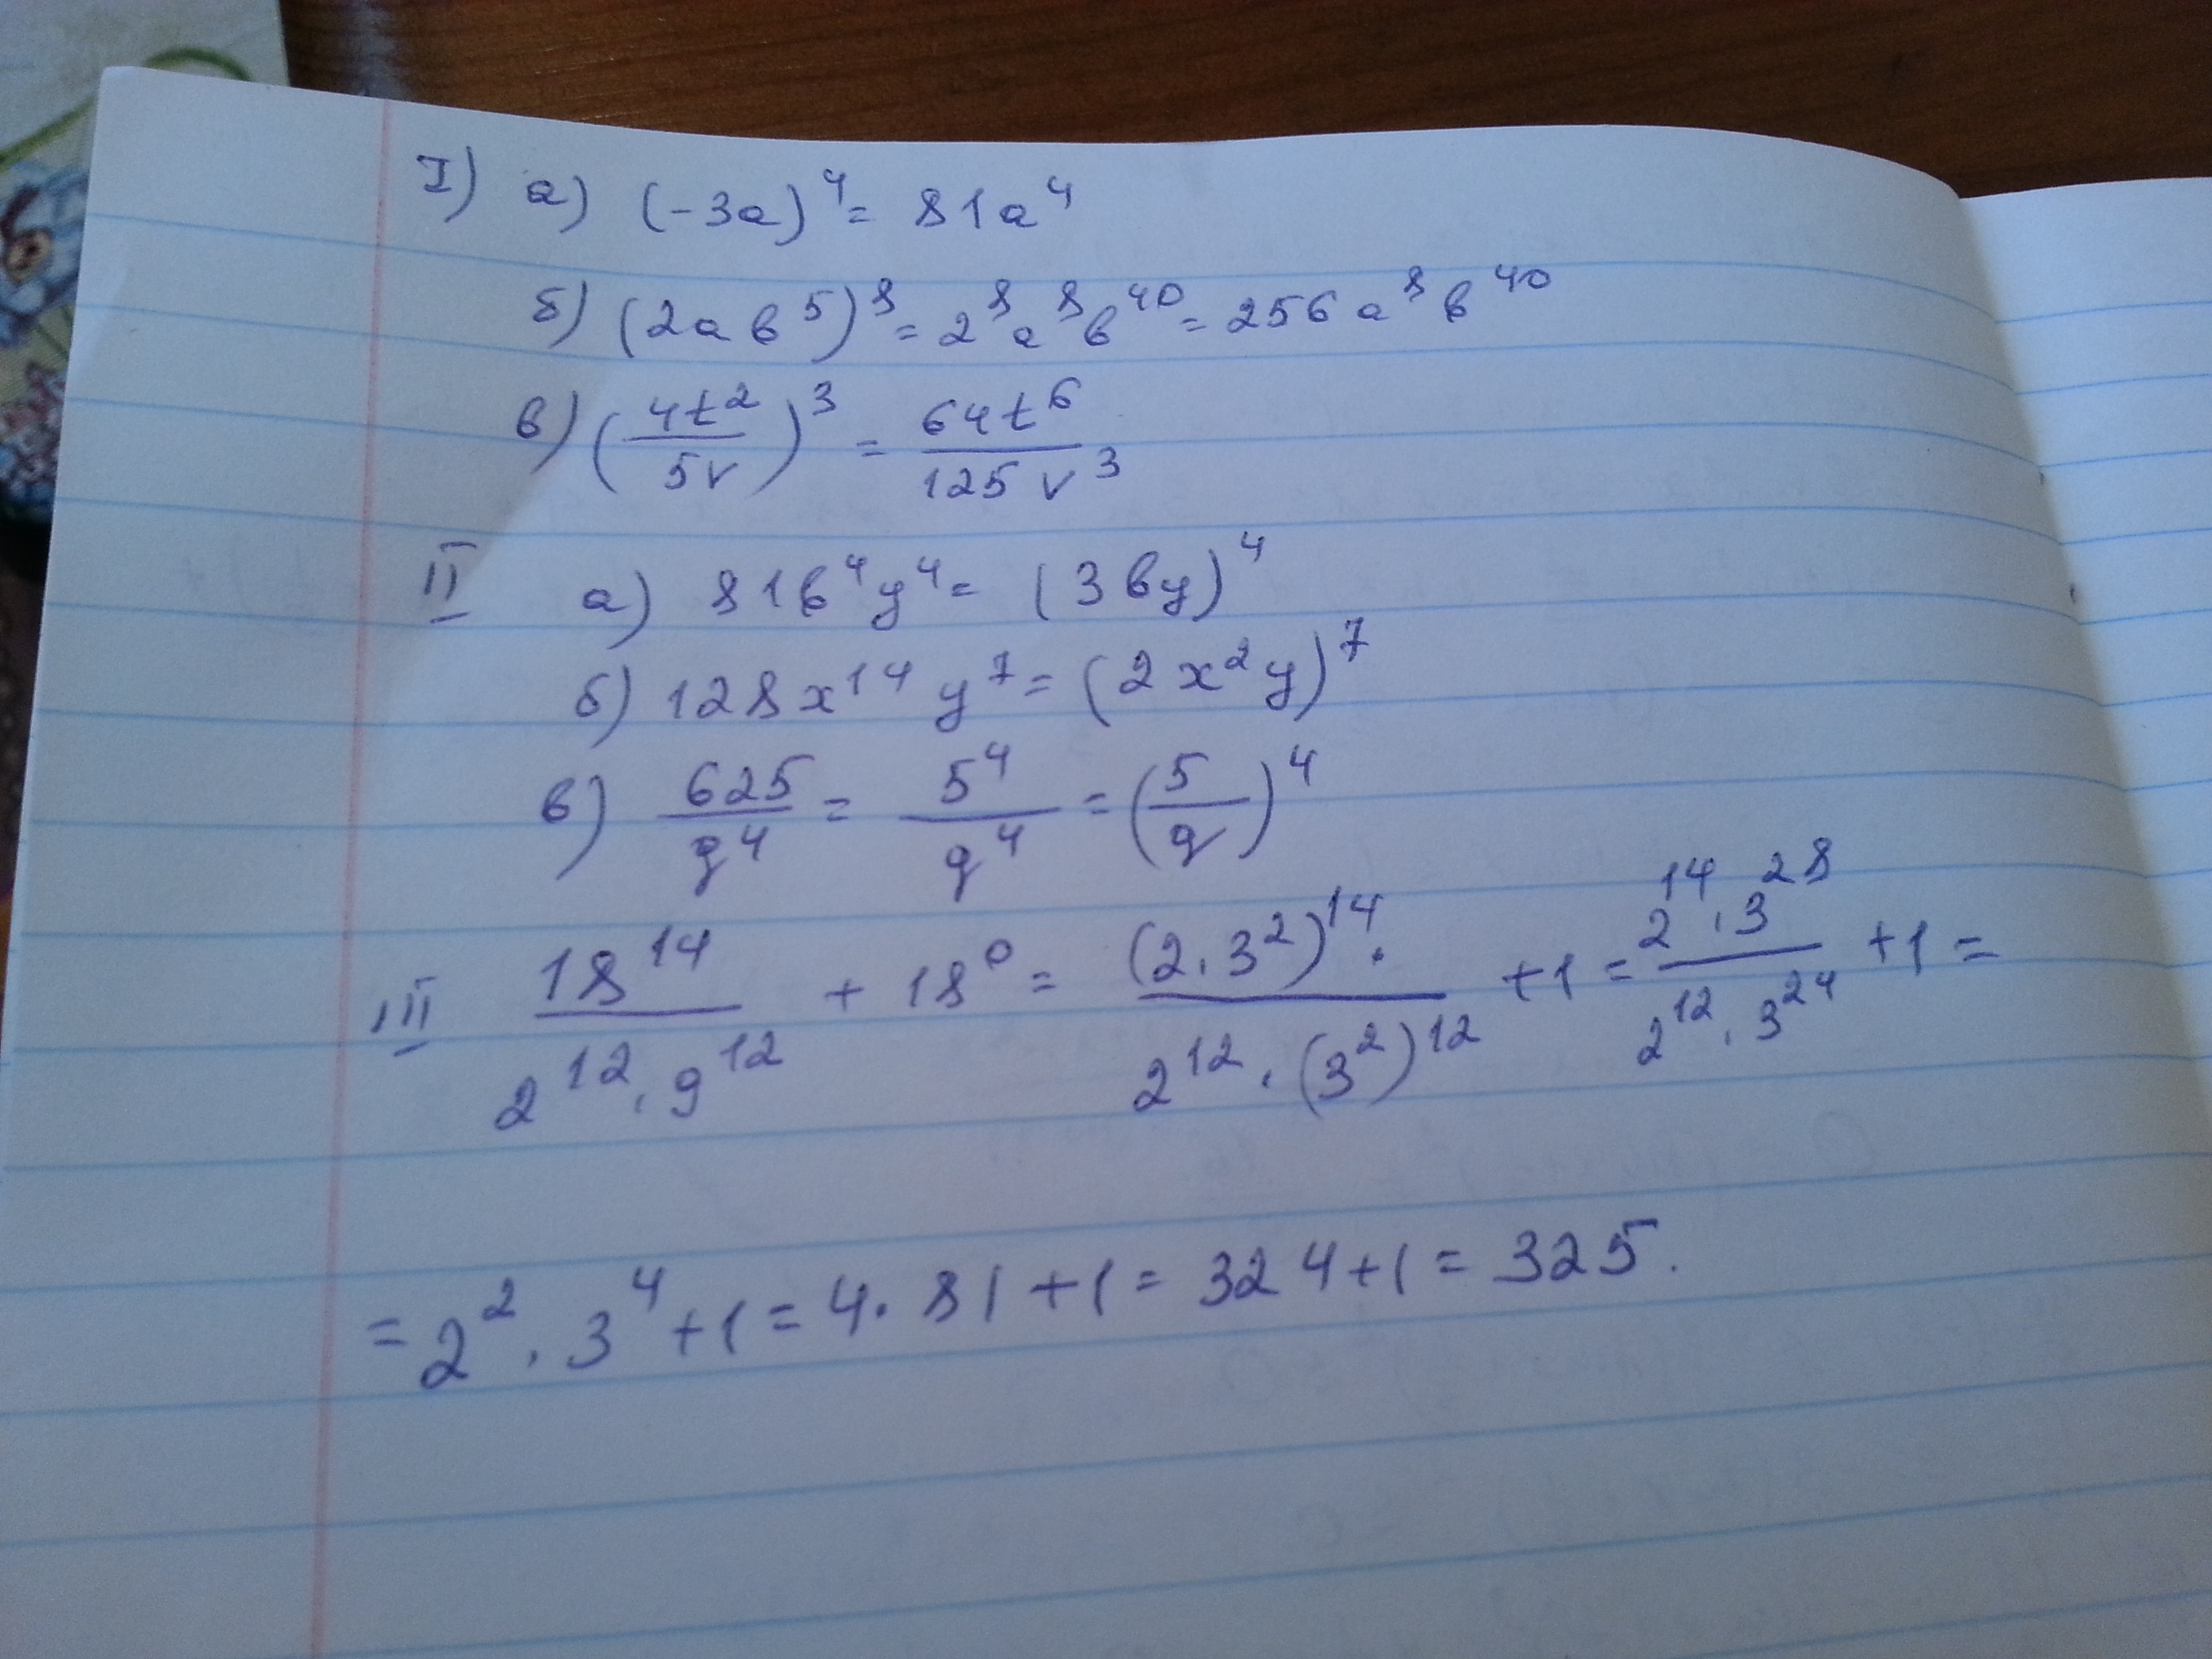 I) а) (-3а)⁴ = 81а⁴
б) (2ав⁵)⁸ = 2⁸а⁸в⁴⁰ = 256а⁸в⁴⁰
в) (4t²/5v)³ = 64t⁶/125v³
II а) 81в⁴y⁴ = (3вy)⁴
б) 128x¹⁴y⁷ = (2x²y)⁷
в) 625/q⁴ = 5⁴/q⁴ = (5/q)⁴
III 18¹⁴/2¹²·9¹² + 18⁰ = (2·3²)¹⁴·/2¹²·(3²)¹² + 1 = 2¹⁴·3²⁸/2¹²·3²⁴ + 1 =
= 2²·3⁴+1 = 4·81+1 = 324+1 = 325.